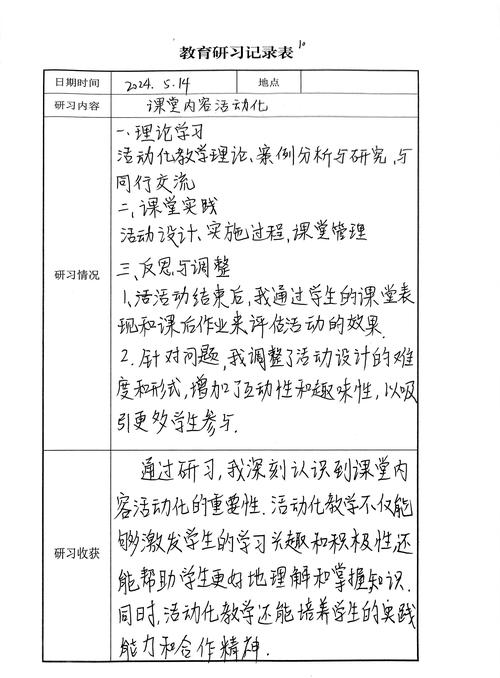 教育研习记录表 10
日期时间 2024.5.14 地点
研习内容 课堂内容活动化
研习情况
一、理论学习
活动化教学理论、案例分析与研究,与
同行交流
二、课堂实践
活动设计、实施过程,课堂管理
三、反思与调整
1、活活动结束后,我通过学生的课堂表
现和课后作业来评估活动的效果.
2. 针对问题,我调整了活动设计的难
度和形式,增加了互动性和趣味性,以吸
引更多学生参与.
研习收获
通过研习,我深刻认识到课堂内
容活动化的重要性.活动化教学不仅能
够激发学生的学习兴趣和积极性,还
能帮助学生更好地理解和掌握知识.
同时,活动化教学还能培养学生的实践
能力和合作精神.